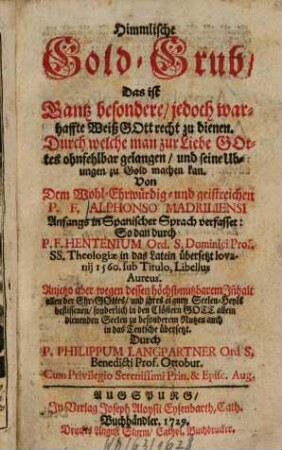 Himmlische
Gold-Grub/
Das ist
Gantz besondere/ jedoch war-
haffte Weiß GOtt recht zu dienen.
Durch welche man zur Liebe GOt-
tes ohnfehlbar gelangen/ und seine Ub-
ungen zu Gold machen kan.
Von
Dem Wohl-Ehrwürdig- und geistreichen
P. F. ALPHONSO MADRILIENSI
Anfangs in Spanischer Sprach verfasset:
So dan durch
P. F. HENTENIUM Ord. S. Dominici Prof.
SS. Theologiæ in das Latein übersetzt lova-
nij 1560. sub Titulo, Libellus
Aureus.
Anjetzo aber wegen dessen höchstnutzbarem Inhalt
allen der Ehr GOttes/ und ihres eignen Seelen-Heyls
beflissenen/ sonderlich in den Clöstern GOTT allein
dienenden Seelen zu besonderem Nutzen auch
in das Teutsche übersetzt.
Durch
P. PHILIPPUM LANGPARTNER Ord S.
Benedicti Prof. Ottobur.
Cum Privilegio Serenissimi Prin. & Episc. Aug.
AUGSPURG/
In Verlag Joseph Aloysii Eysenbarth, Cath.
Buchhändler. 1729.
Druckts August Sturm/ Cathol. Buchdrucker.